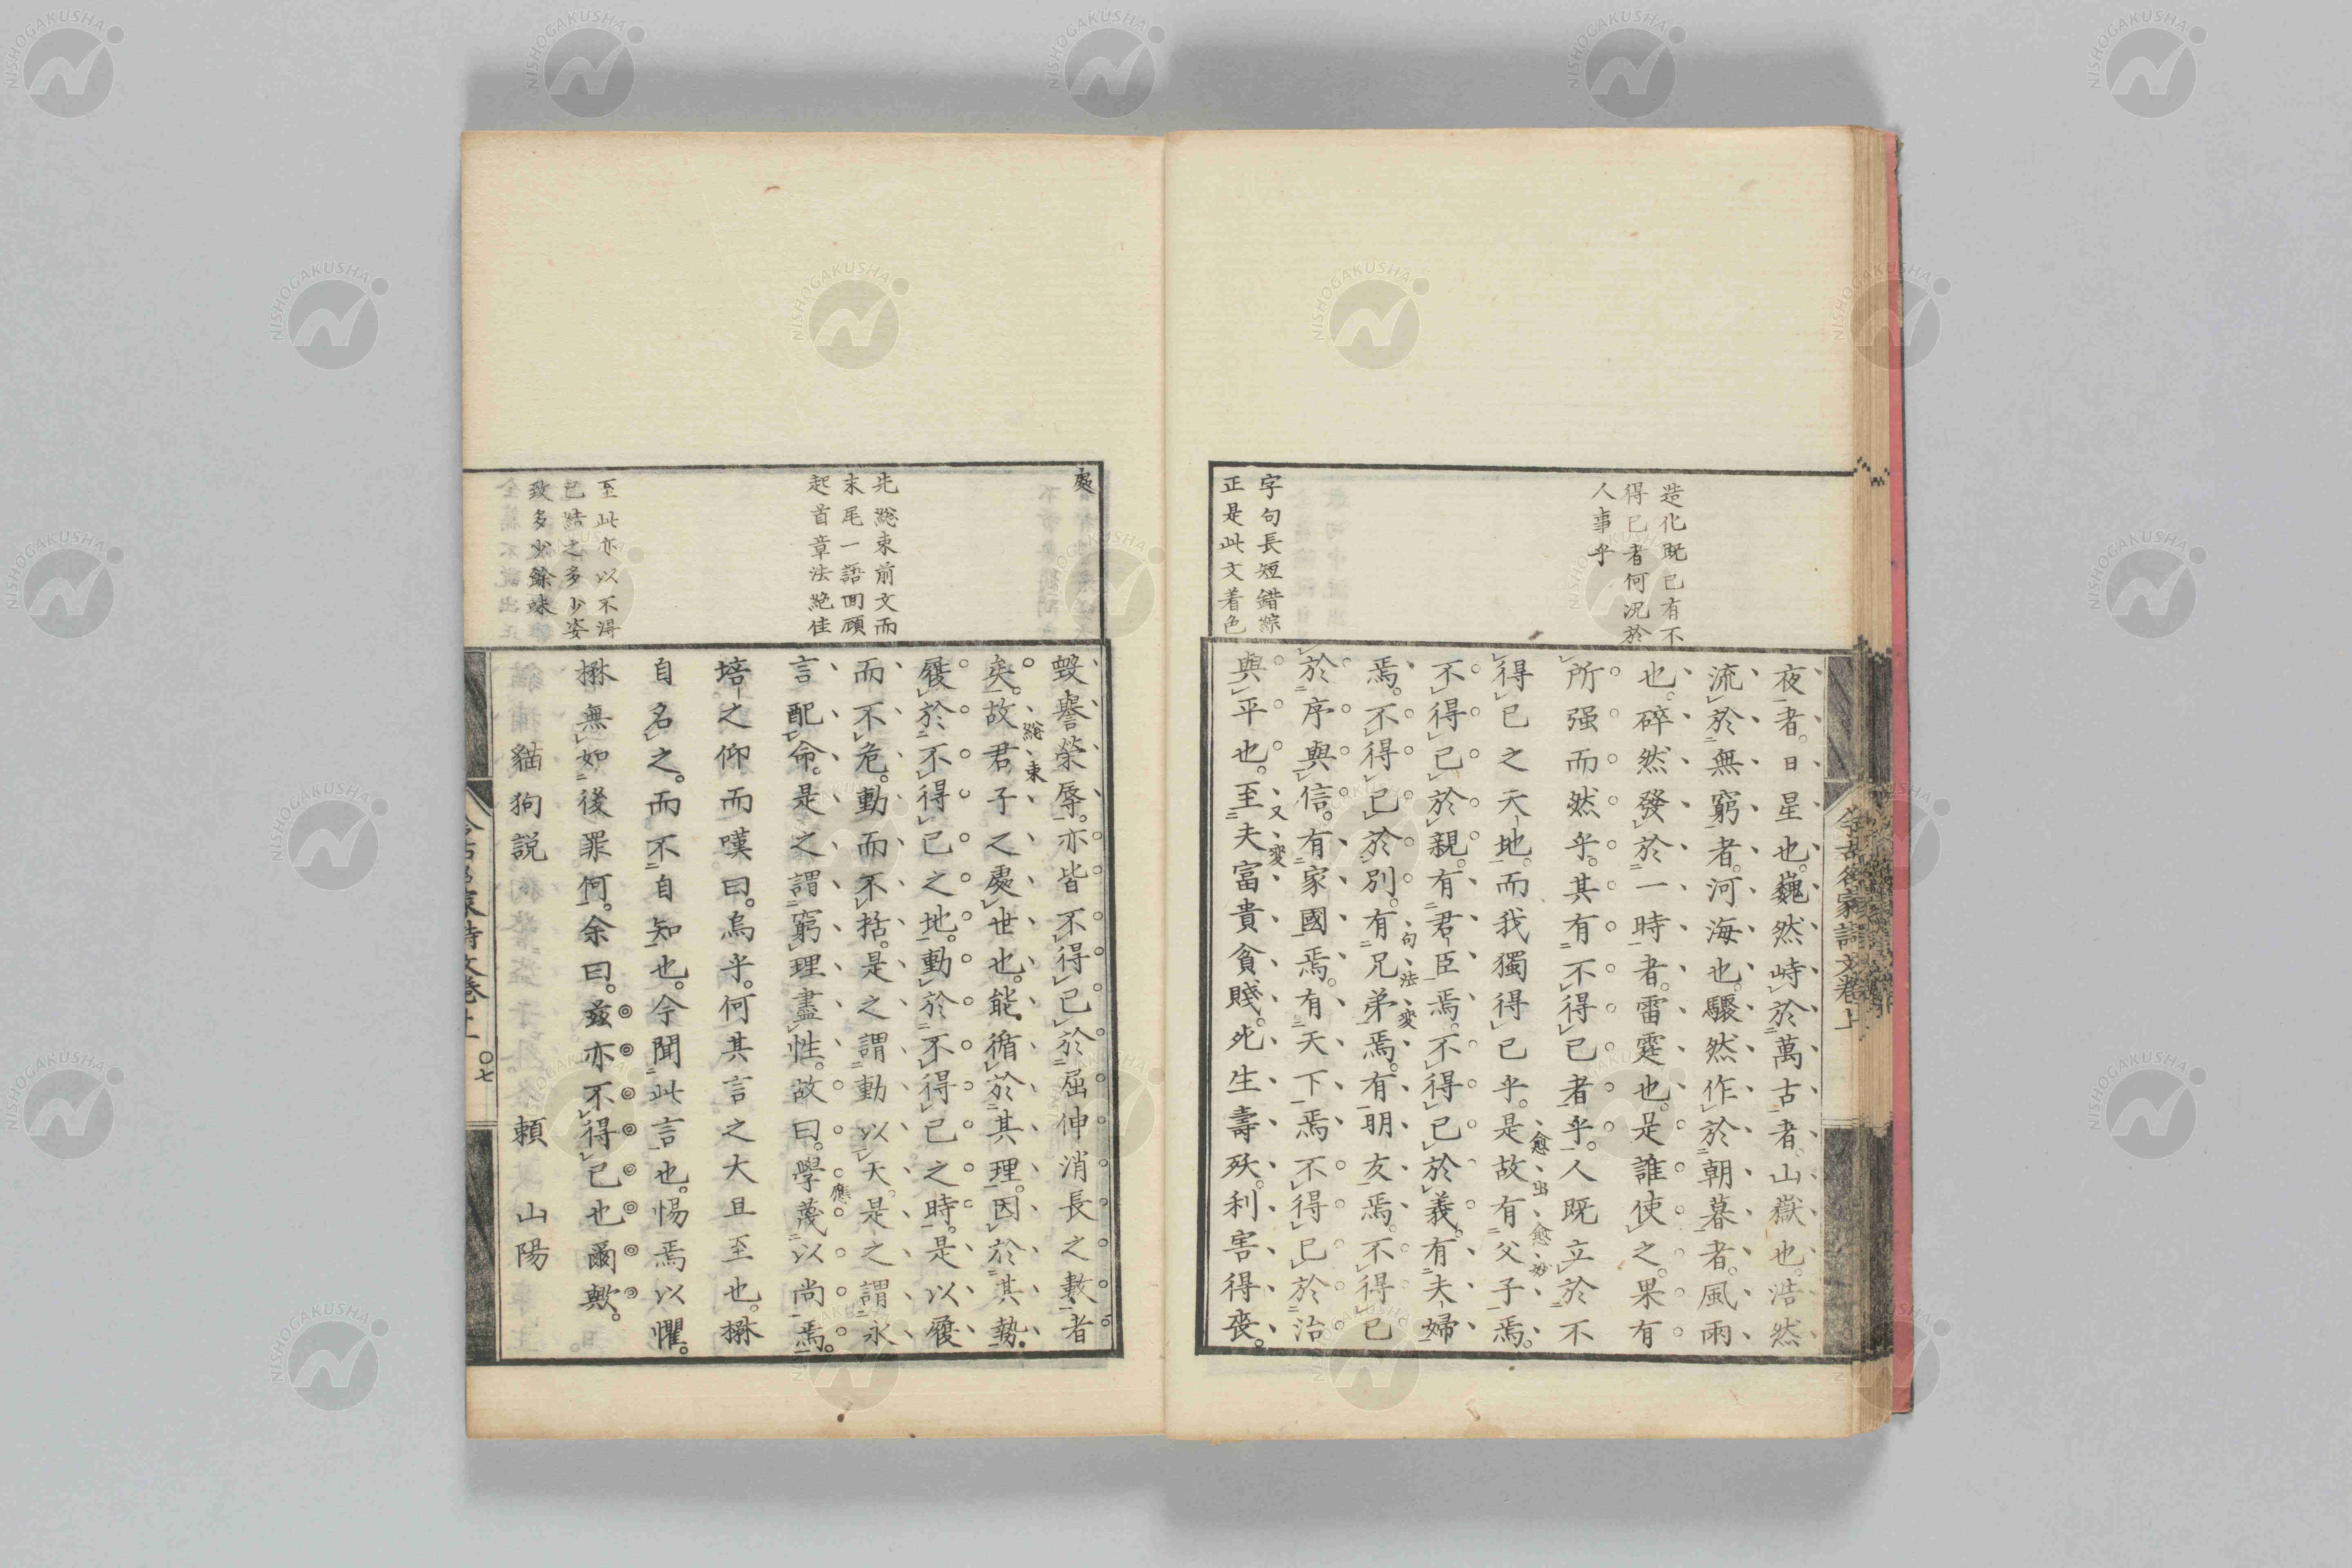 造化既已有不
得已者何況於
人事乎
字句長短錯綜
正是此文着色
夜者。日星也。巍然峙於萬古者。山嶽也。浩然
流於無窮者。河海也。驟然作於朝暮者。風雨
也。碎然發於一時者。雷霆也。是誰使之。果有
所强而然乎。其有不得已者乎。人既立於不
得已之天地。而我獨得已乎。是故有父子焉。
愈出愈妙
不得已於親。有君臣焉。不得已於義。有夫婦
焉。不得已於別。有兄弟焉。有朋友焉。不得已
句法変
於序與信。有家國焉。有天下焉。不得已於治
與平也。至夫富貴貧賤。死生壽殀。利害得喪。
又変
今古名家詩文卷上
處
先総束前文而
末尾一語回顧
起首章法絶佳
至此亦以不得
已結之多少姿
致多少餘味
毀譽榮辱。亦皆不得已於屈伸消長之數者
矣。故君子之處世也。能循於其理。因於其勢。
総束
履於不得已之地。動於不得已之時。是以履
而不危。動而不括。是之謂動以天。是之謂永
言配命。是之謂窮理盡性。故曰。學蔑以尚焉。
應
培之仰而嘆曰。烏乎。何其言之大且至也。楙
自名之。而不自知也。今聞此言也。惕焉以懼。
楙無如後罪何。余曰。茲亦不得已也爾歟。
貓狗説　　賴山陽
〇七
NISHOGAKUSHA